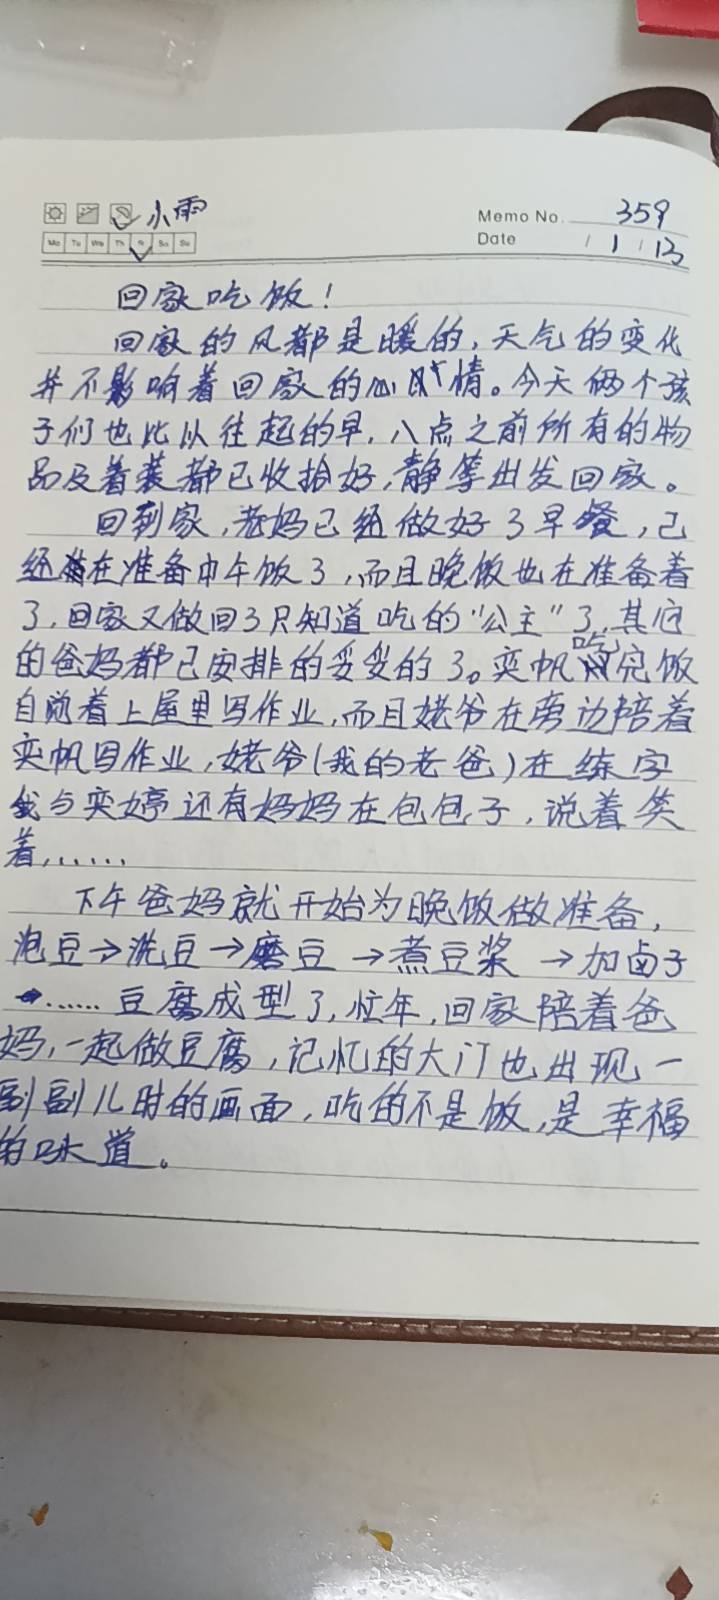 小雨
Memo No. 359
Mo Tu We Th Fr Sa Su
Date / 1 / 13
回家吃饭！
回家的风都是暖的，天气的变化
并不影响着回家的心情。今天俩个孩
子们也比以往起的早，八点之前所有的物
品及着装都已收拾好，静等出发回家。
回到家，老妈已经做好了早餐，已
经在准备中午饭了，而且晚饭也在准备着
了，回家又做回了只知道吃的“公主”了，其它
的爸妈都已安排的妥妥的了。奕帆吃完饭
自觉着上屋里写作业，而且姥爷在旁边陪着
奕帆写作业，姥爷(我的老爸)在练字
我与奕婷还有妈妈在包包子，说着笑
着……
下午爸妈就开始为晚饭做准备，
泡豆→洗豆→磨豆→煮豆浆→加卤子
→……豆腐成型了，忙年，回家陪着爸
妈，一起做豆腐，记忆的大门也出现一
副副儿时的画面，吃的不是饭，是幸福
的味道。